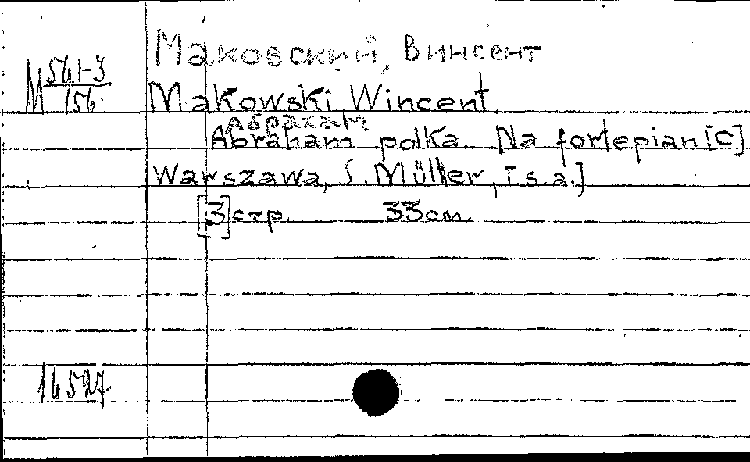 Маковский, Винсент
М 561-3
156
Makowski Wincent
Абрахам
Abraham polka. Na fortepian [C]
Warszawa, S. Müller, [s.a.]
[3] стр. 33 см.
16527